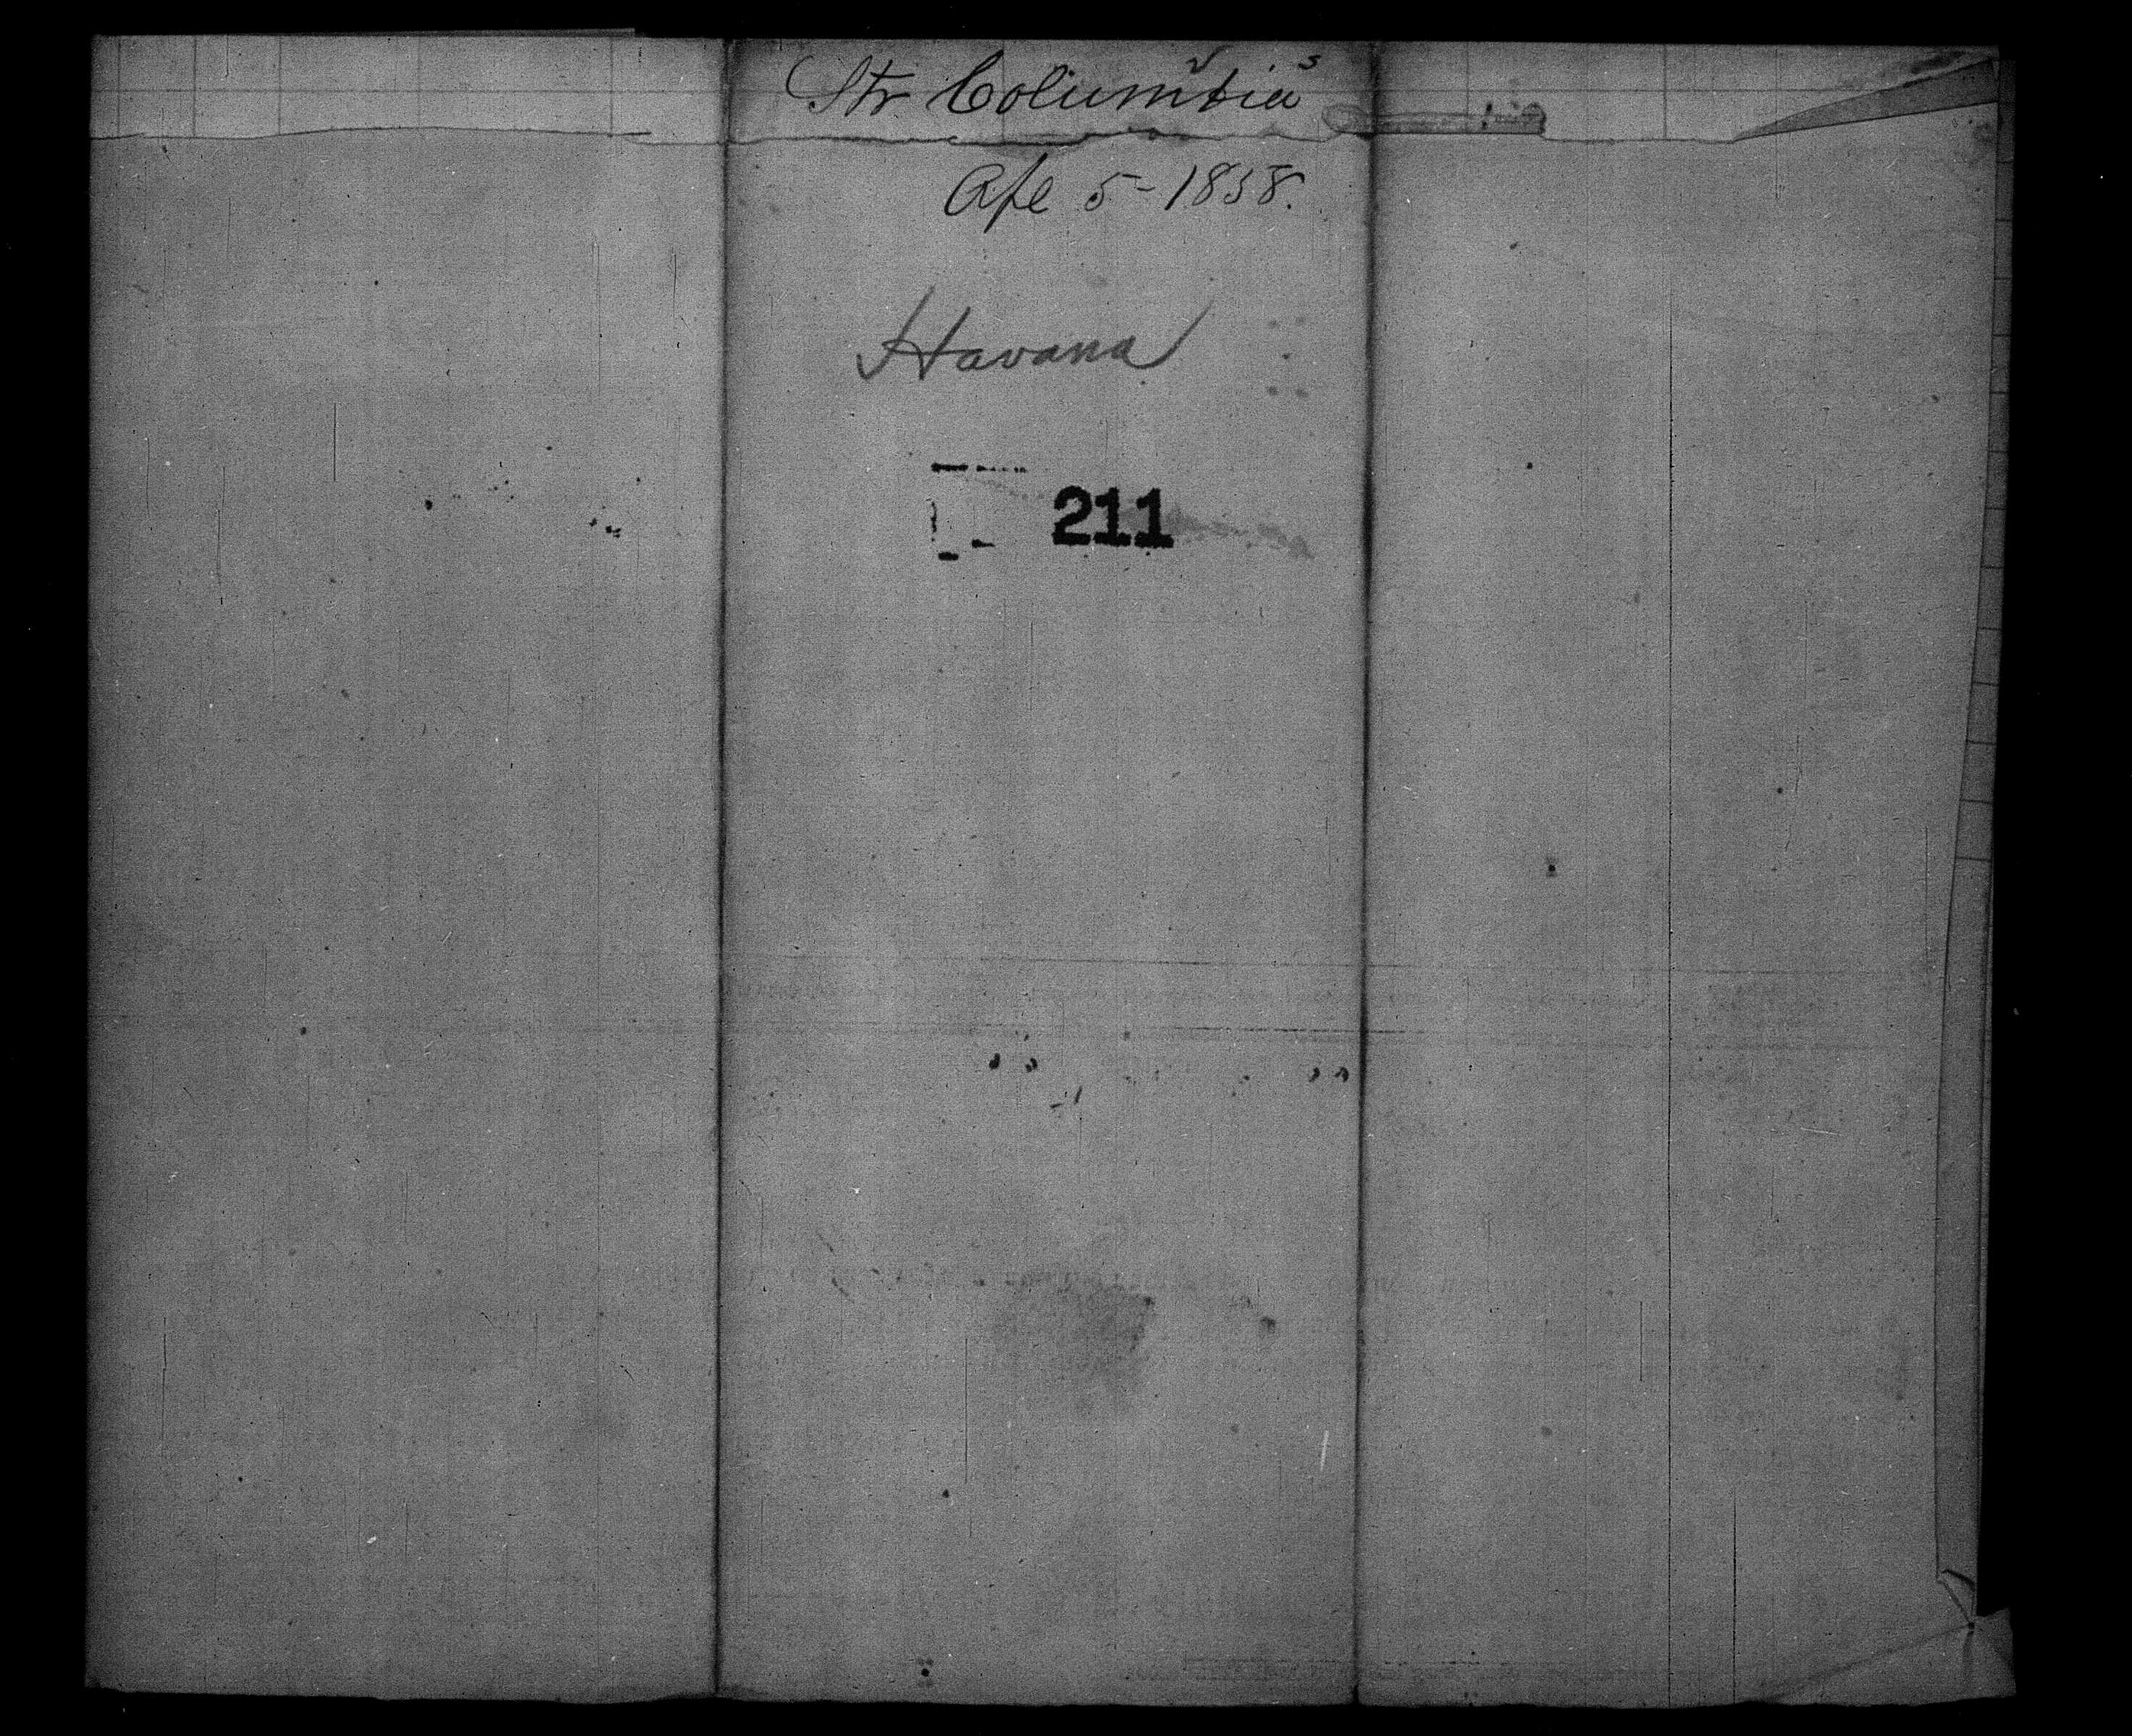 Str Columbia
Apl 5-1858.
Havana
211